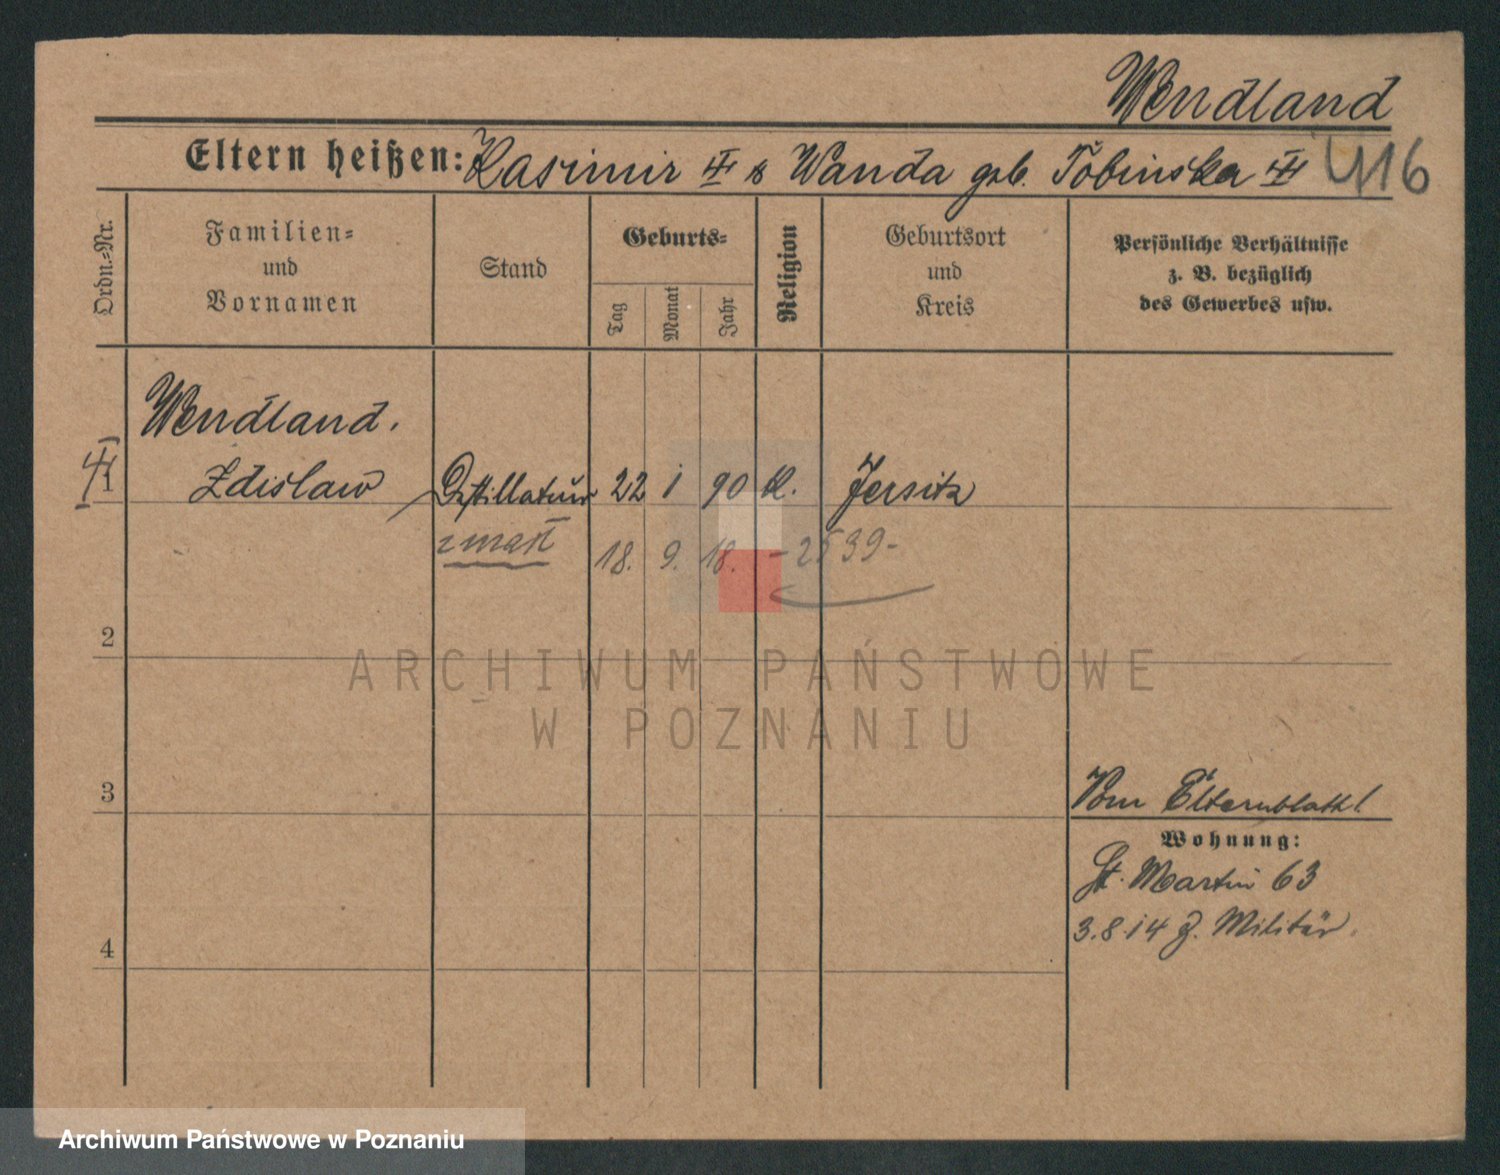 Wendland
Eltern heißen: Kasimir & Wanda geb. Tobinska
416
Ordn.-Nr.
Familien-
und
Vornamen
Stand
Geburts-
Tag
Monat
Jahr
Religion
Geburtsort
und
Kreis
Persönliche Verhältnisse
z. B. bezüglich
des Gewerbes usw.
Wendland.
1 Zdislaw Destillateur 22 1 90 k. Jersitz
zmarł 18. 9. 18. -2539-
2
ARCHIWUM PAŃSTWOWE
W POZNANIU
3
Vom Elternblatt!
Wohnung:
St. Martin 63
3.8.14 z. Militär.
4
Archiwum Państwowe w Poznaniu